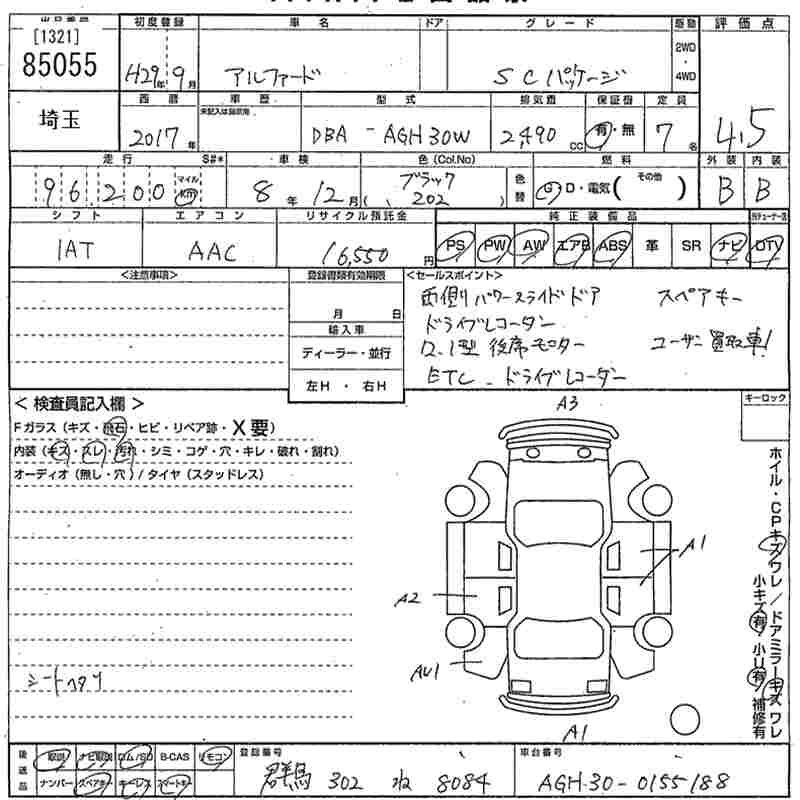 [1321]
85055
初度登録 車名 ドア グレード 駆動 評価点
H29年9月 アルファード SCパッケージ 2WD・4WD
埼玉
西暦 車歴 型式 排気量 保証書 定員
未記入は自家用
2017年 DBA-AGH30W 2,490cc 有・無 7名 4.5
走行 S#* ・車検 色(Col.No) 燃料 外装 内装
96200 マイル km 8年12月 ブラック (202) 色替 G・D・電気( その他 ) B B
シフト エアコン リサイクル預託金 純正装備品
IAT AAC 16,550円 PS PW AW エアB ABS 革 SR ナビ DTV
<注意事項> 登録書類有効期限 <セールスポイント>
月 日
輸入車
ディーラー・並行
左H ・ 右H
両側パワースライドドア スペアキー
ドライブレコーダー
12.1型 後席モニター ユーザー買取車!
ETC ドライブレコーダー
キーロック
<検査員記入欄>
Fガラス(キズ・飛石・ヒビ・リペア跡・X要)
内装(キズ・スレ・汚れ・シミ・コゲ・穴・キレ・破れ・割れ)
オーディオ(無し・穴)/タイヤ(スタッドレス)
A3
A1
A2
AU1
A1
シートヘタリ
ホイル・CPキズワレ/ドアミラーキズワレ
小キズ有/小U有/補修有
後送品 取説 ナビ取説 ロム/SD B-CAS リモコン 登録番号 車台番号
ナンバー スペアキー キーレス スマートキー 群馬 302 ね 8084 AGH30-0155188